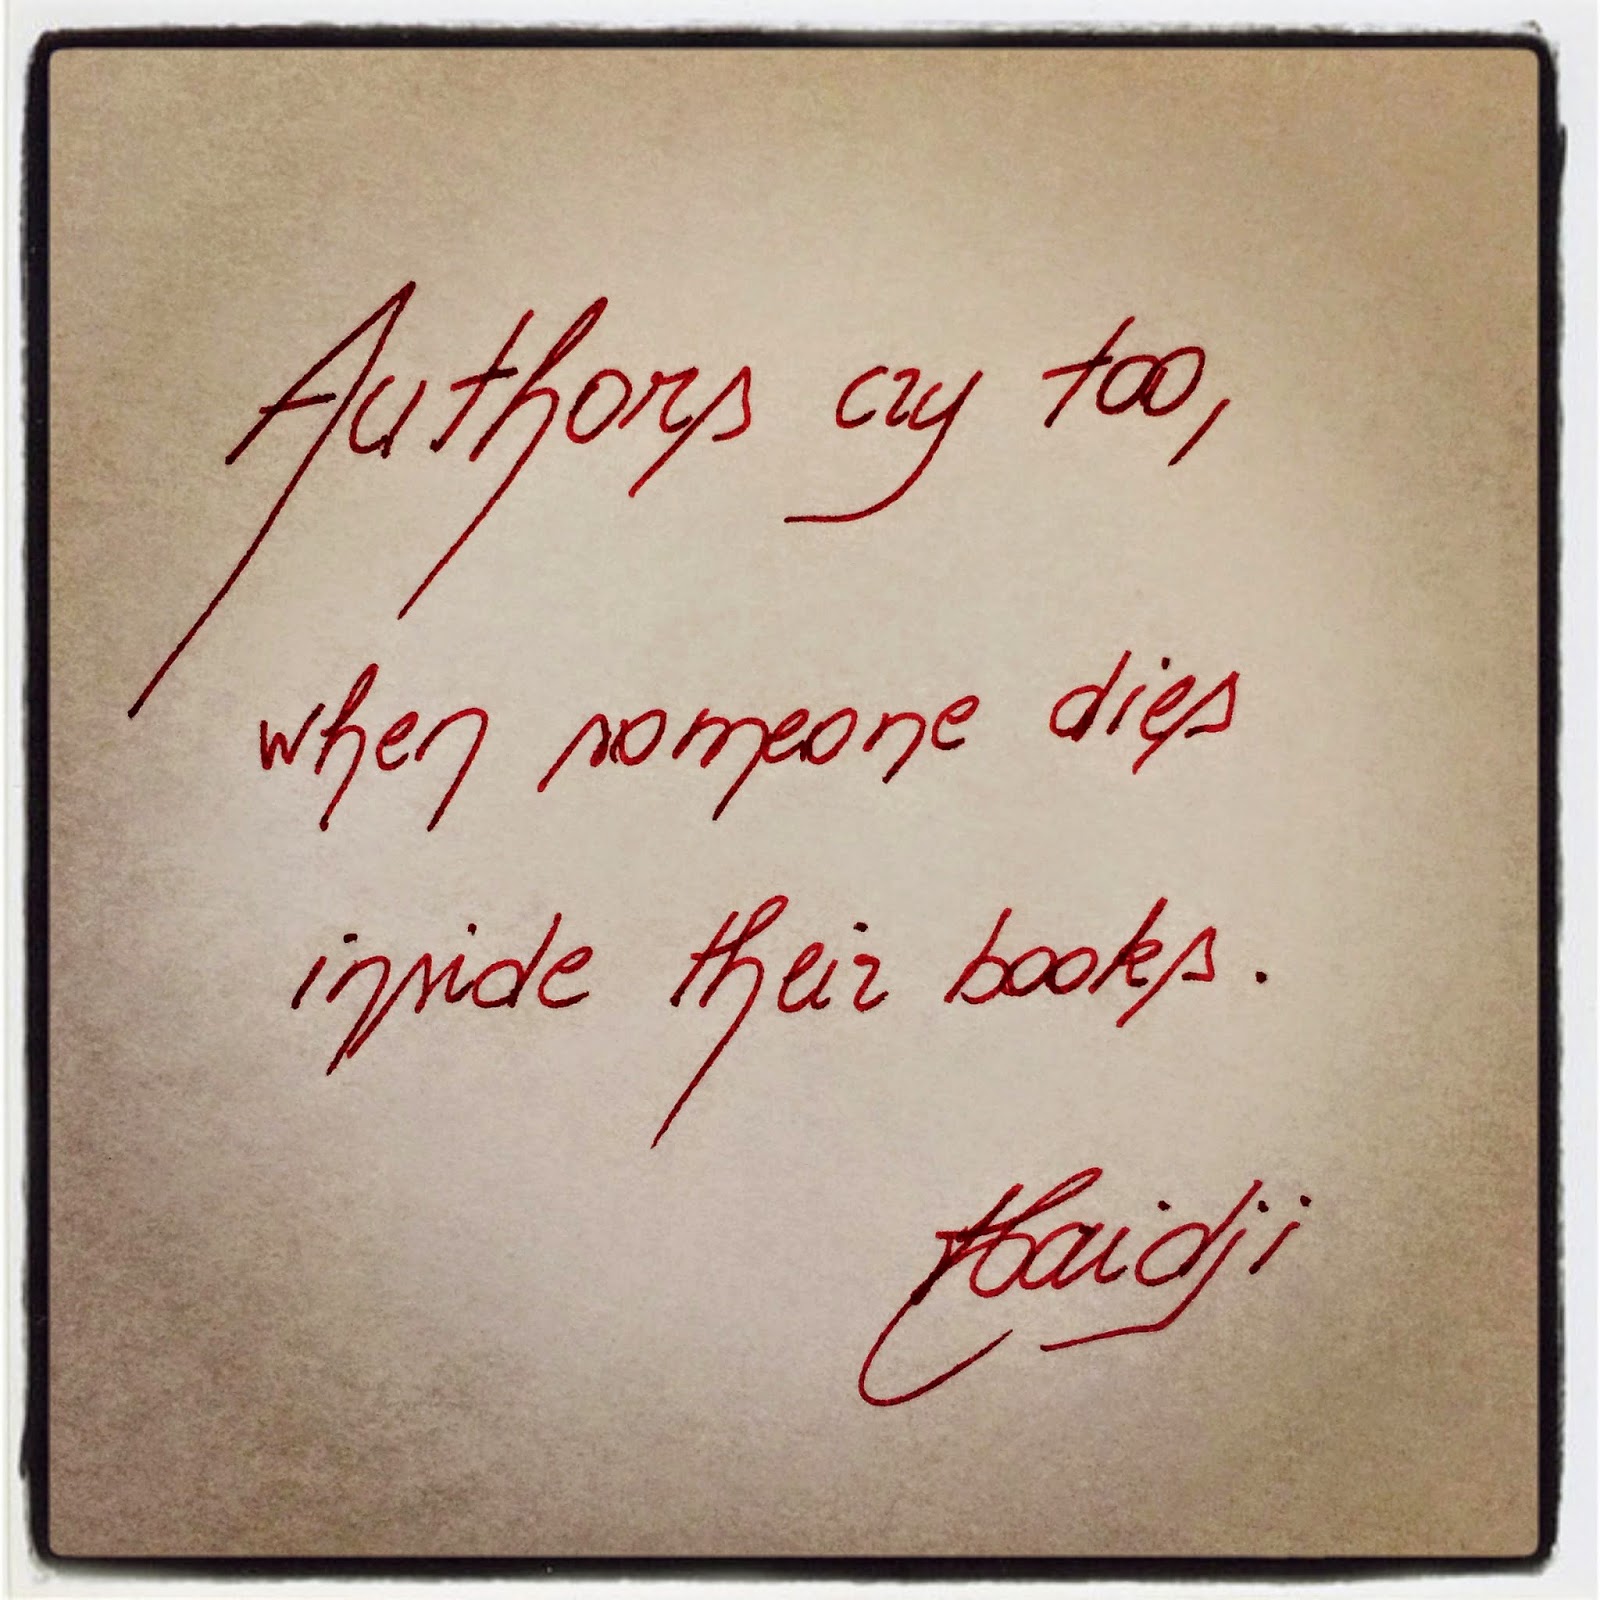 Authors cry too,
when someone dies
inside their books.
Haidji